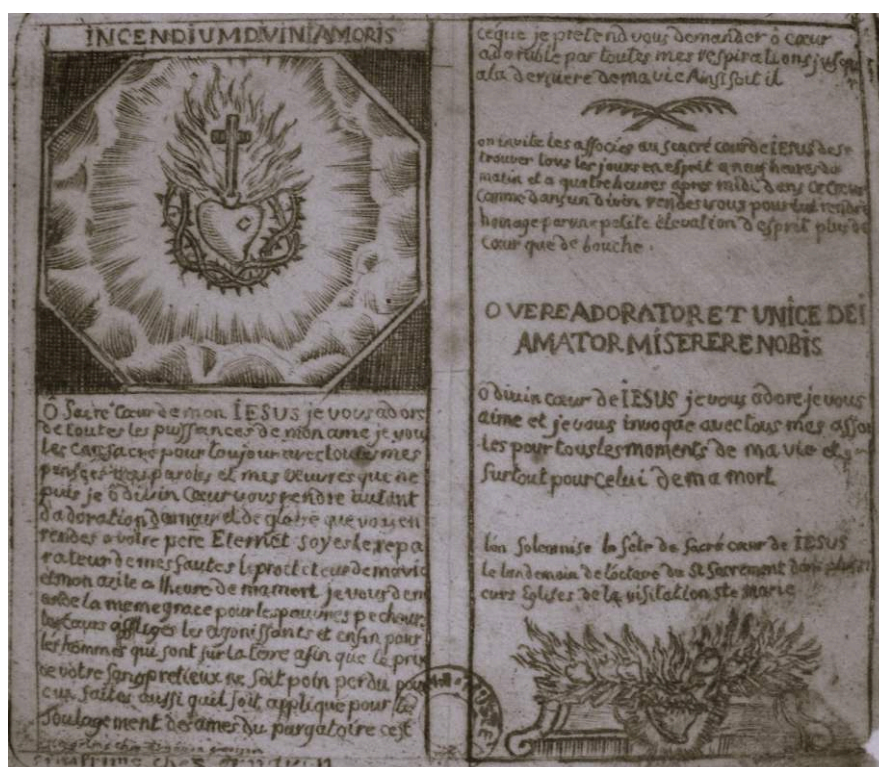 INCENDIUM DIVINI AMORIS
Ô Sacré Cœur de mon IESUS je vous adore
de toutes les puissances de mon ame je vous
les consacre pour toujour avec toutes mes
pensées mes paroles et mes œuvres que ne
puis je ô divin Cœur vous rendre autant
d'adoration d'amour et de gloire que vous en
rendes a votre pere Eternel soyes le repa
rateur de mes fautes le protecteur de ma vie
et mon azile a lheure de ma mort je vous dem
ande la meme grace pour les pauvres pecheurs
les cœurs affligés les agonissants et enfin pour
les hommes qui sont sur la terre afin que le prix
de votre sang pretieux ne soit poin perdu pour
eux faites aussi quil soit appliqué pour le
soulagement des ames du purgatoire cest
ceque je pretend vous demander ô cœur
adorable par toutes mes respirations jusqu
a la derniere de ma vie Ainsi soit il
on invite les associés au sacré cœur de IESUS de se
trouver tous les jours en esprit a neuf heures du
matin et a quatre heures apres midi dans ce Cœur
Comme dans un divin rendes vous pour lui rendre
homage par une petite élevation d'esprit plus de
Cœur que de bouche.
O VERE ADORATOR ET UNICE DEI
AMATOR MISERERE NOBIS
ô divin cœur de IESUS je vous adore je vous
aime et je vous invoque avec tous mes asso
les pour tous les moments de ma vie et
surtout pour celui de ma mort
lon solemnise la fête du sacré cœur de IESUS
le landemain de l'octave du St Sacrement dans plusi
eurs Eglises de la visitation ste marie